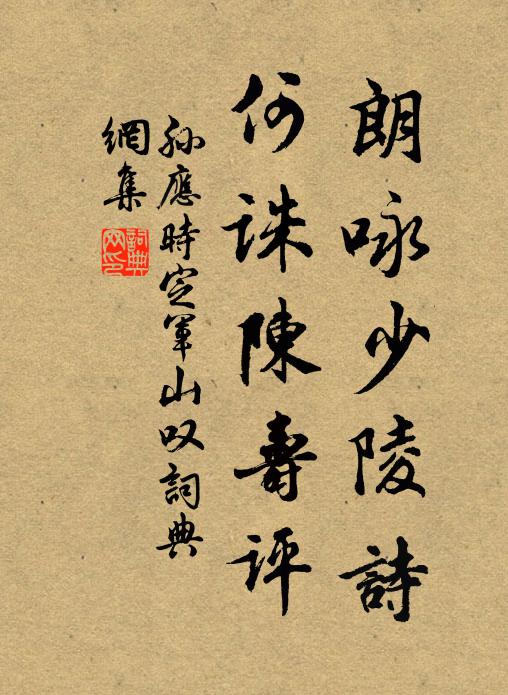 朗咏少陵詩
何誅陳壽評
孙應時定軍山叹詞典
網集
詞典
网印